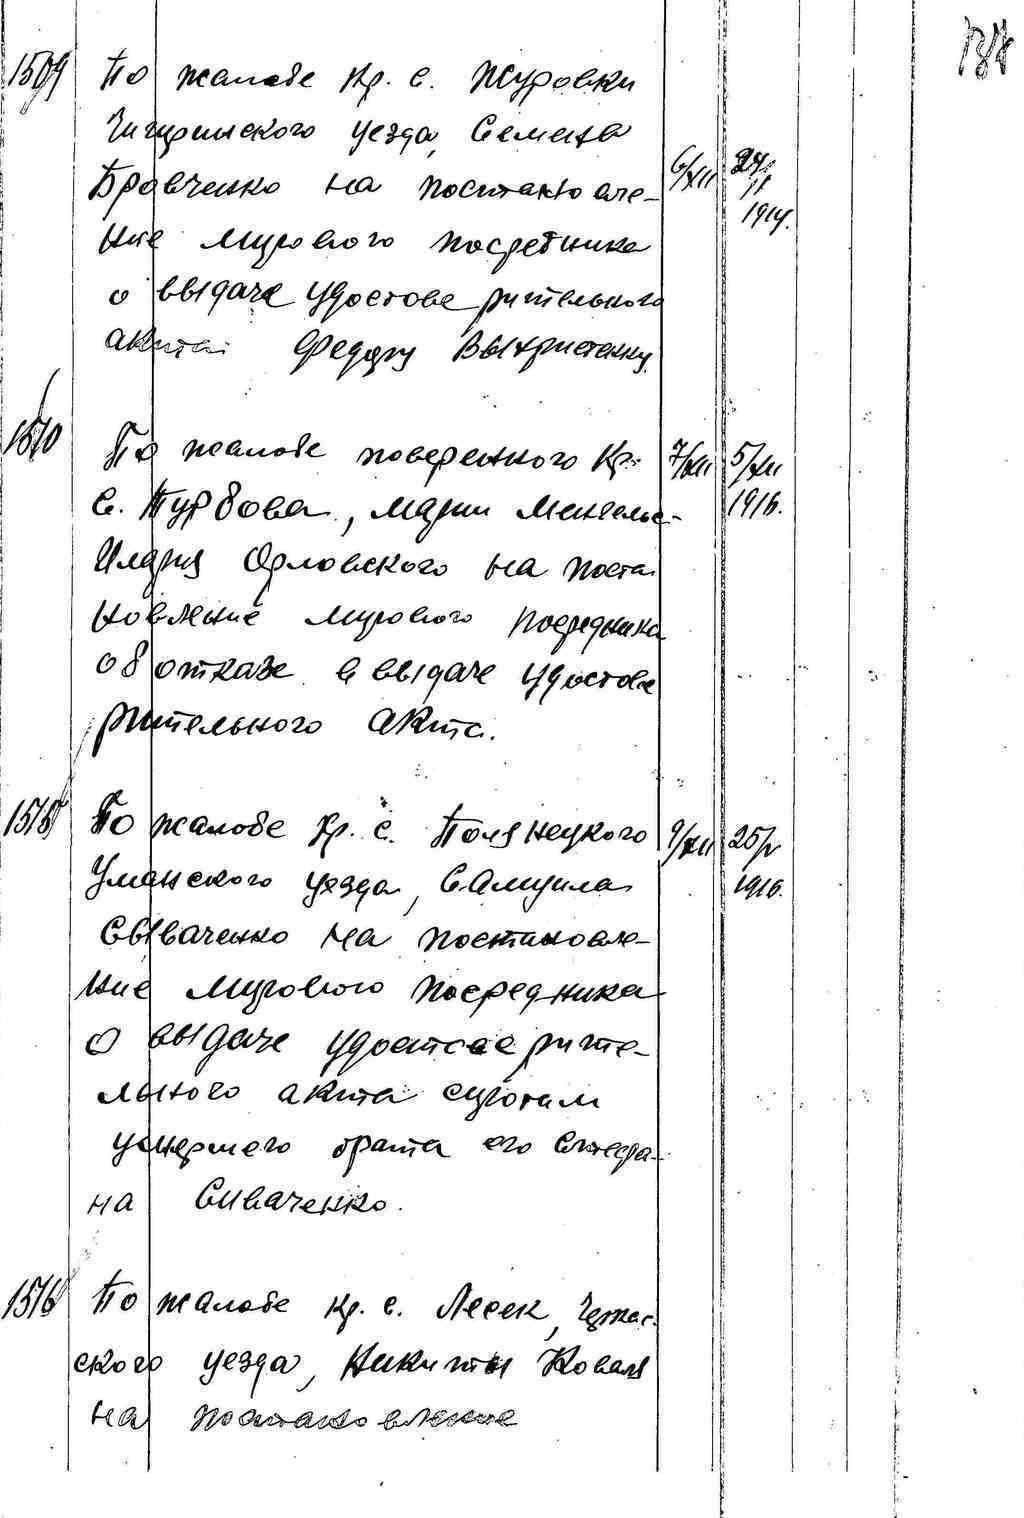 1509 По жалобе Кр. с. Журовки
Чигиринского уезда, Семена
Бровченко на постановле-
ние мирового посредника
о выдаче удостоверительного
акта Федору Выхристенку.
6/XII
1914.
1510 По жалобе поверенного Кр.
с. Турбова, Марии
Илария Орловского на поста
новление мирового посредника
об отказе в выдаче удостове
рительного акта.
7/XII 5/XII
1916.
1515 По жалобе Кр. с. Полянецкого
Уманского уезда, Самуила
Сываченко на постановле-
ние мирового посредника
о выдаче удостоверите-
льного акта сиротам
умершего брата его Стефа-
на Сиваченко.
9/XII
1916.
1516 По жалобе Кр. с. Лесек, Черкас-
ского уезда, Никиты Коваля
на постановление